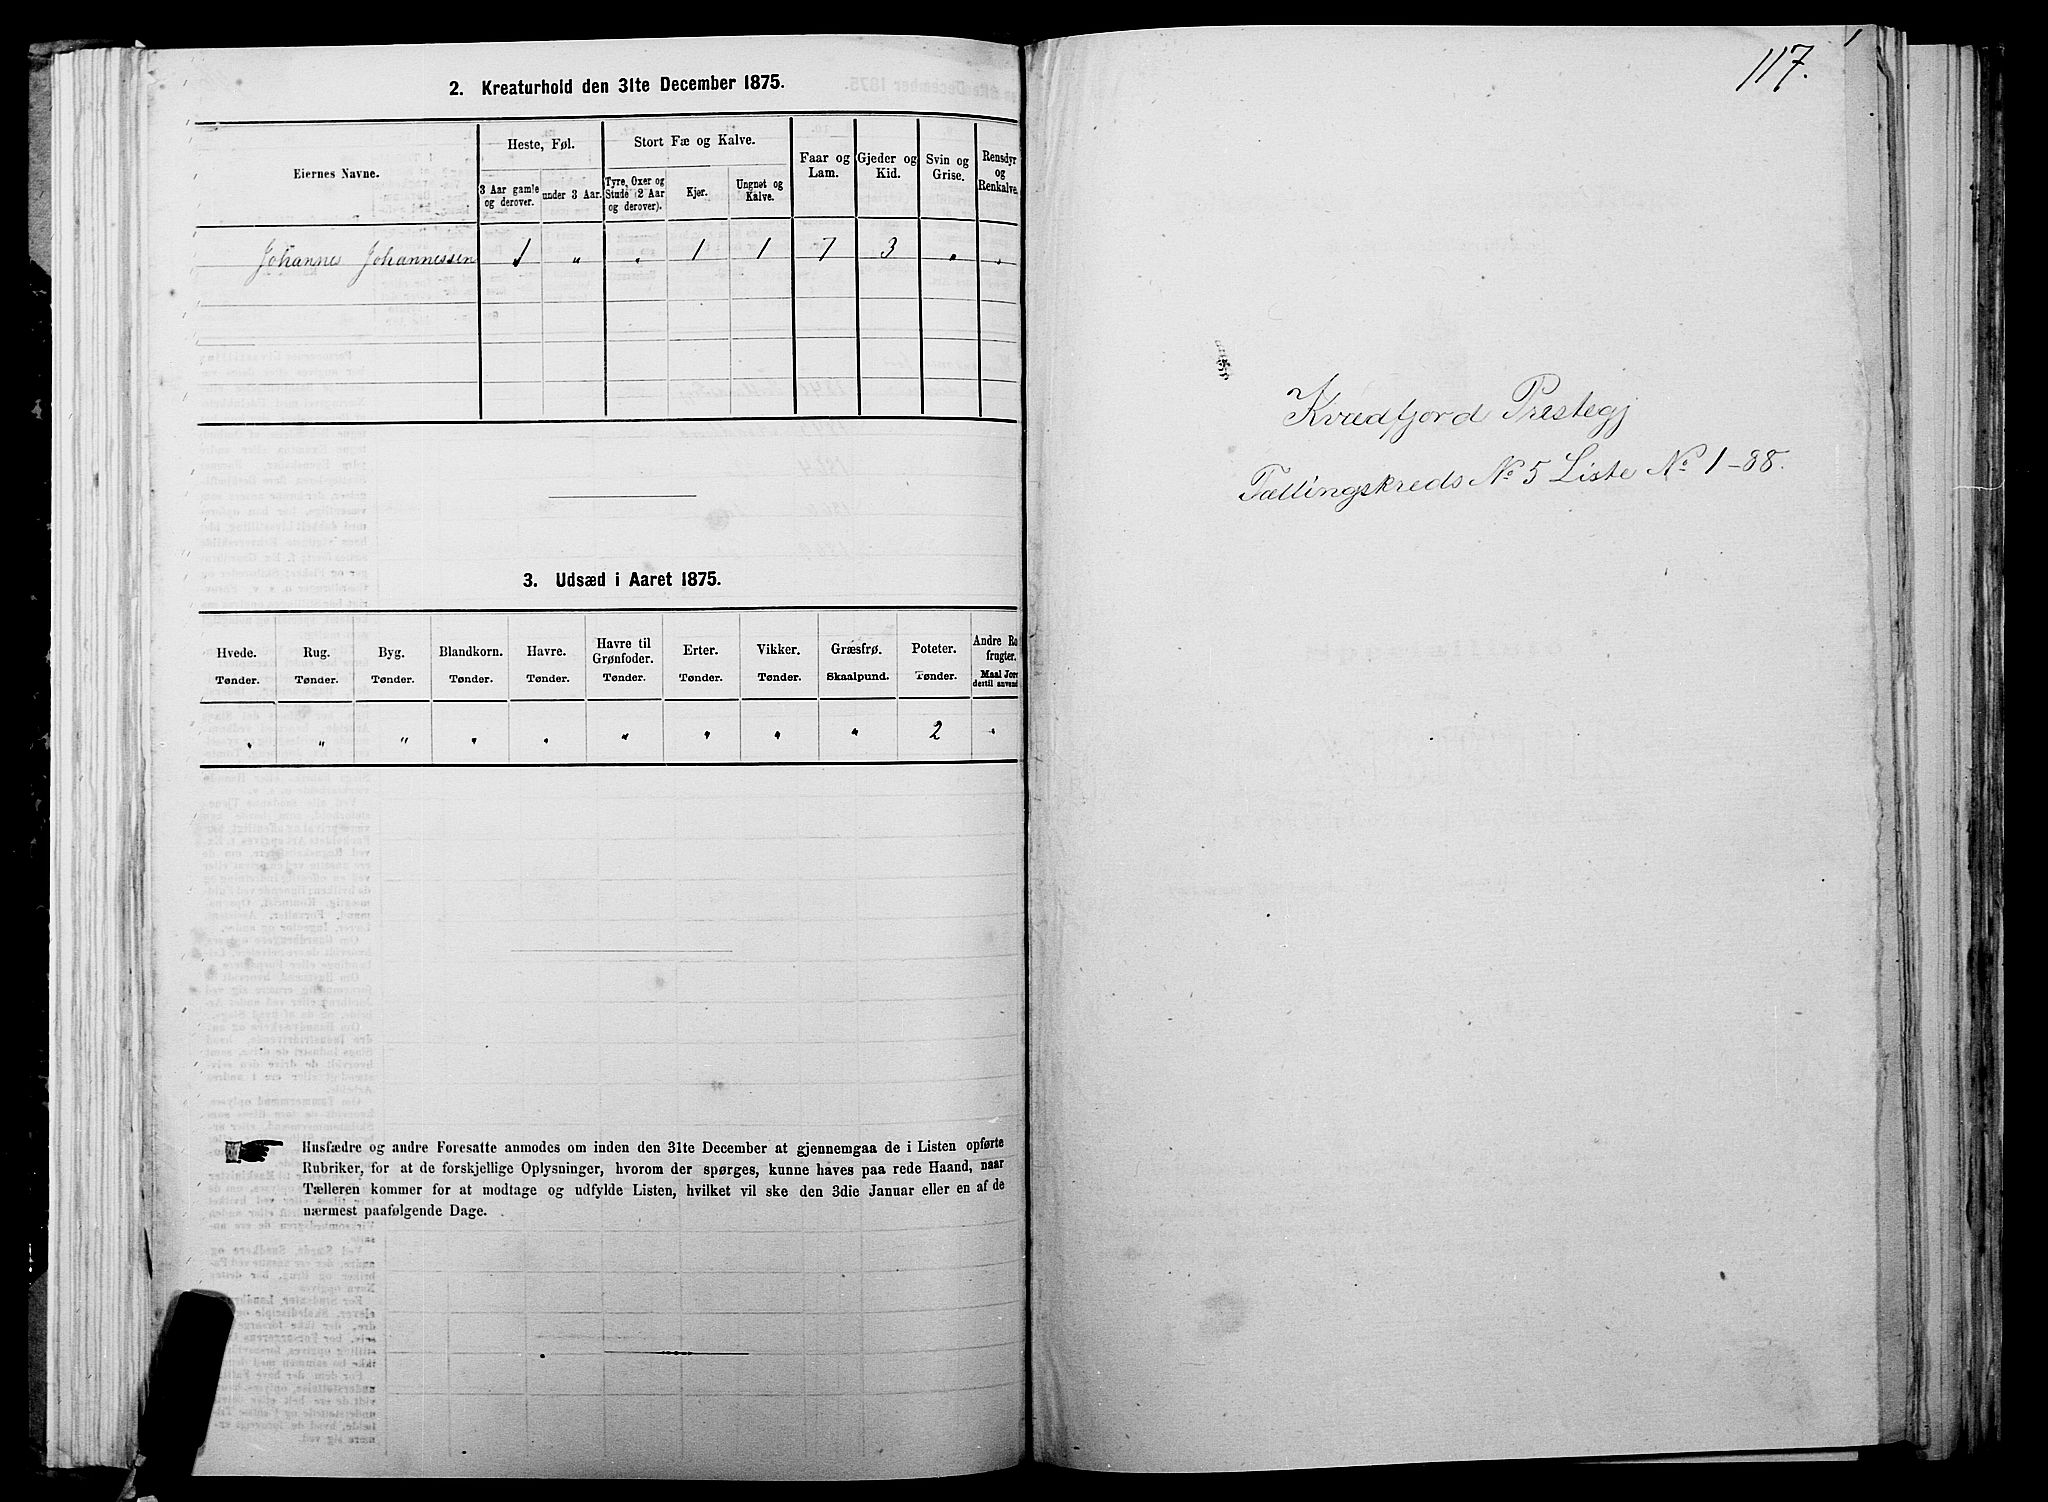 2. Kreaturhold den 31te December 1875.
Eiernes Navne.
Heste, Føl.
3 Aar gamle og derover.
under 3 Aar.
Stort Fæ og Kalve.
Tyre, Oxer og Stude (2 Aar og derover).
Kjør.
Ungnøt og Kalve.
Faar og Lam.
Gjeder og Kid.
Svin og Grise.
Rensdyr og Renkalve.
Johannes Johannessen 1 " " 1 1 7 3 " "
3. Udsæd i Aaret 1875.
Hvede. Rug. Byg. Blandkorn. Havre. Havre til Grønfoder. Erter. Vikker. Græsfrø. Poteter. Andre Ro frugter.
Tønder. Tønder. Tønder. Tønder. Tønder. Tønder. Tønder. Tønder. Skaalpund. Tønder. Maal Jor dertil anvend
" " " " " " " " " 2 "
Husfædre og andre Foresatte anmodes om inden den 31te December at gjennemgaa de i Listen opførte
Rubriker, for at de forskjellige Oplysninger, hvorom der spørges, kunne haves paa rede Haand, naar
Tælleren kommer for at modtage og udfylde Listen, hvilket vil ske den 3die Januar eller en af de
nærmest paafølgende Dage.
117.
Kvædfjord Prestegj
Tællingskreds No 5 Liste No 1-88.